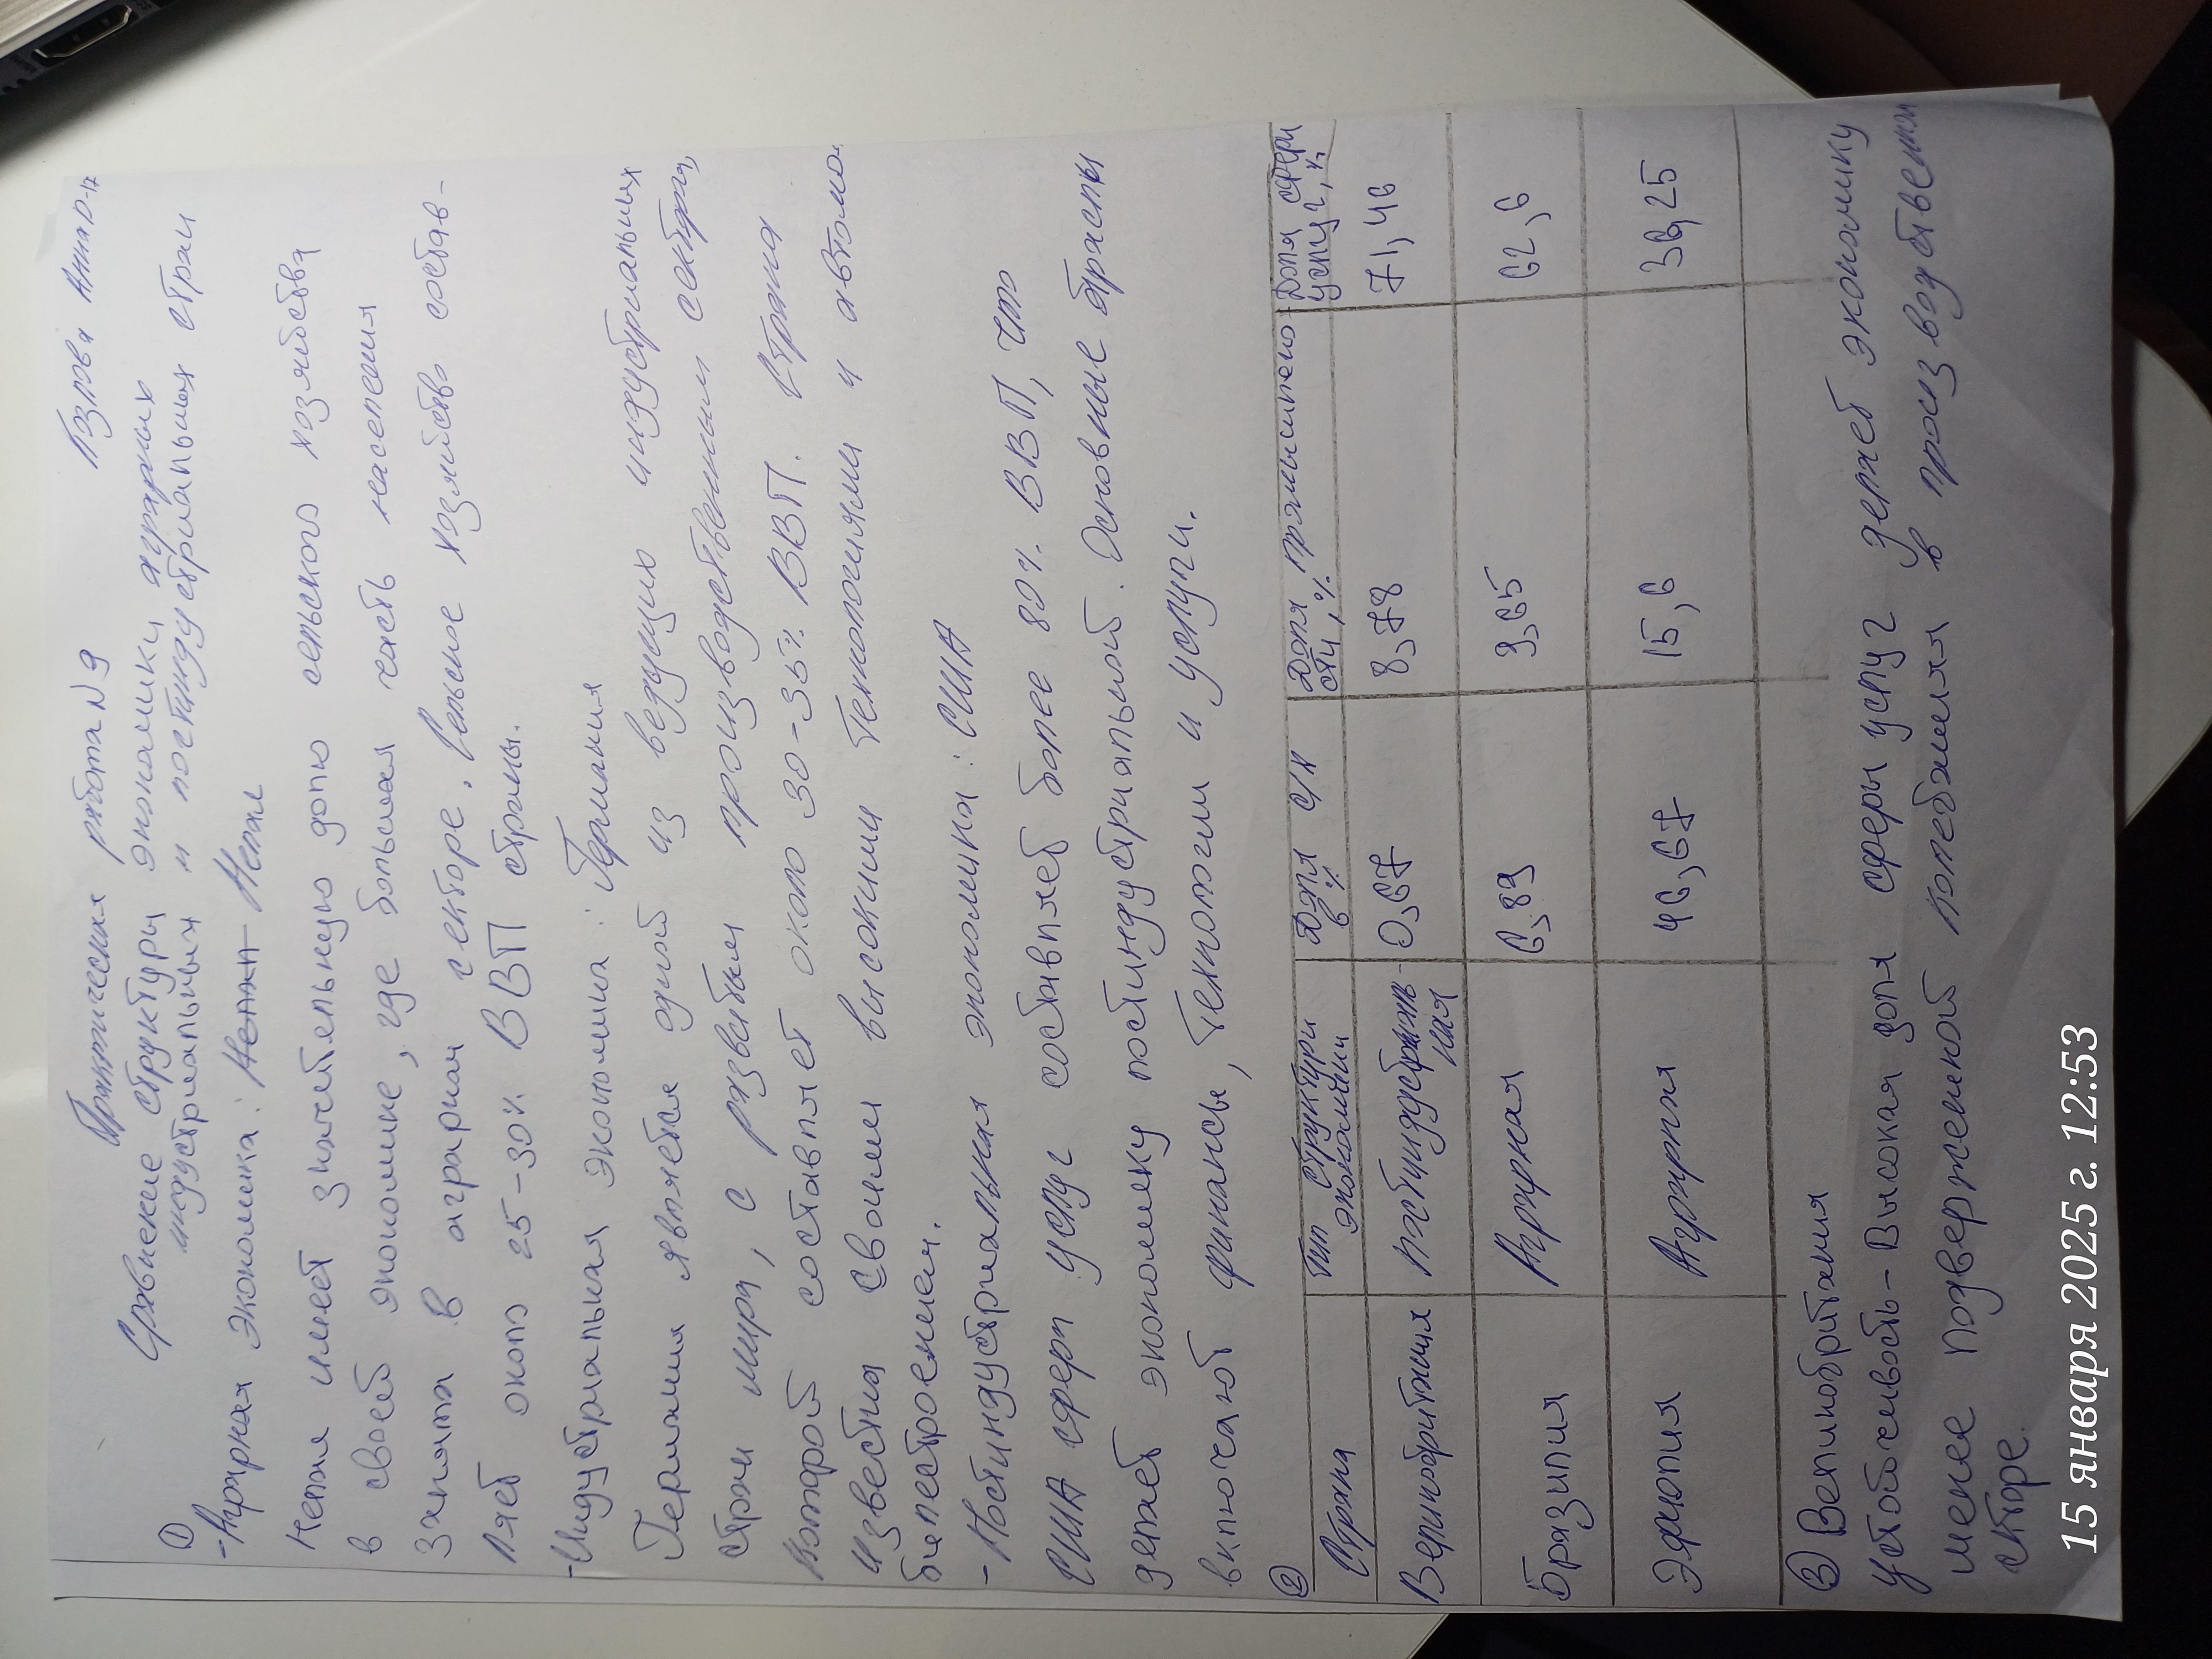 Практическая работа №9 Язрова Анна D-12
Сравнение структуры экономики аграрных
индустриальных и постиндустриальных стран
①
-Аграрная экономика: Непал Непал
Непал имеет значительную долю сельского хозяйства
в своей экономике, где большая часть населения
занята в аграрном секторе. Сельское хозяйство состав-
ляет около 25-30% ВВП страны.
-Индустриальная экономика: Германия
Германия является одной из ведущих индустриальных
стран мира, с развитым производственным сектором,
который составляет около 30-35% ВВП. Страна
известна своими высокими технологиями и автомо-
билестроением.
- Постиндустриальная экономика: США
США сфера услуг составляет более 80% ВВП, что
делает экономику постиндустриальной. Основные отрасли
включают финансы, технологии и услуги.
②
Страна Тип структуры экономики Доля с/х в % Доля промышлено-сти, % Доля сферы услуг, %
Великобритания Постиндустриаль-ная 0,67 8,78 71,46
Бразилия Аграрная 6,89 9,65 62,6
Эфиопия Аграрная 46,67 15,6 38,25
③ Великобритания
Устойчивость - Высокая доля сферы услуг делает экономику
менее подверженной колебаниям в производственном
секторе.
15 января 2025 г. 12:53